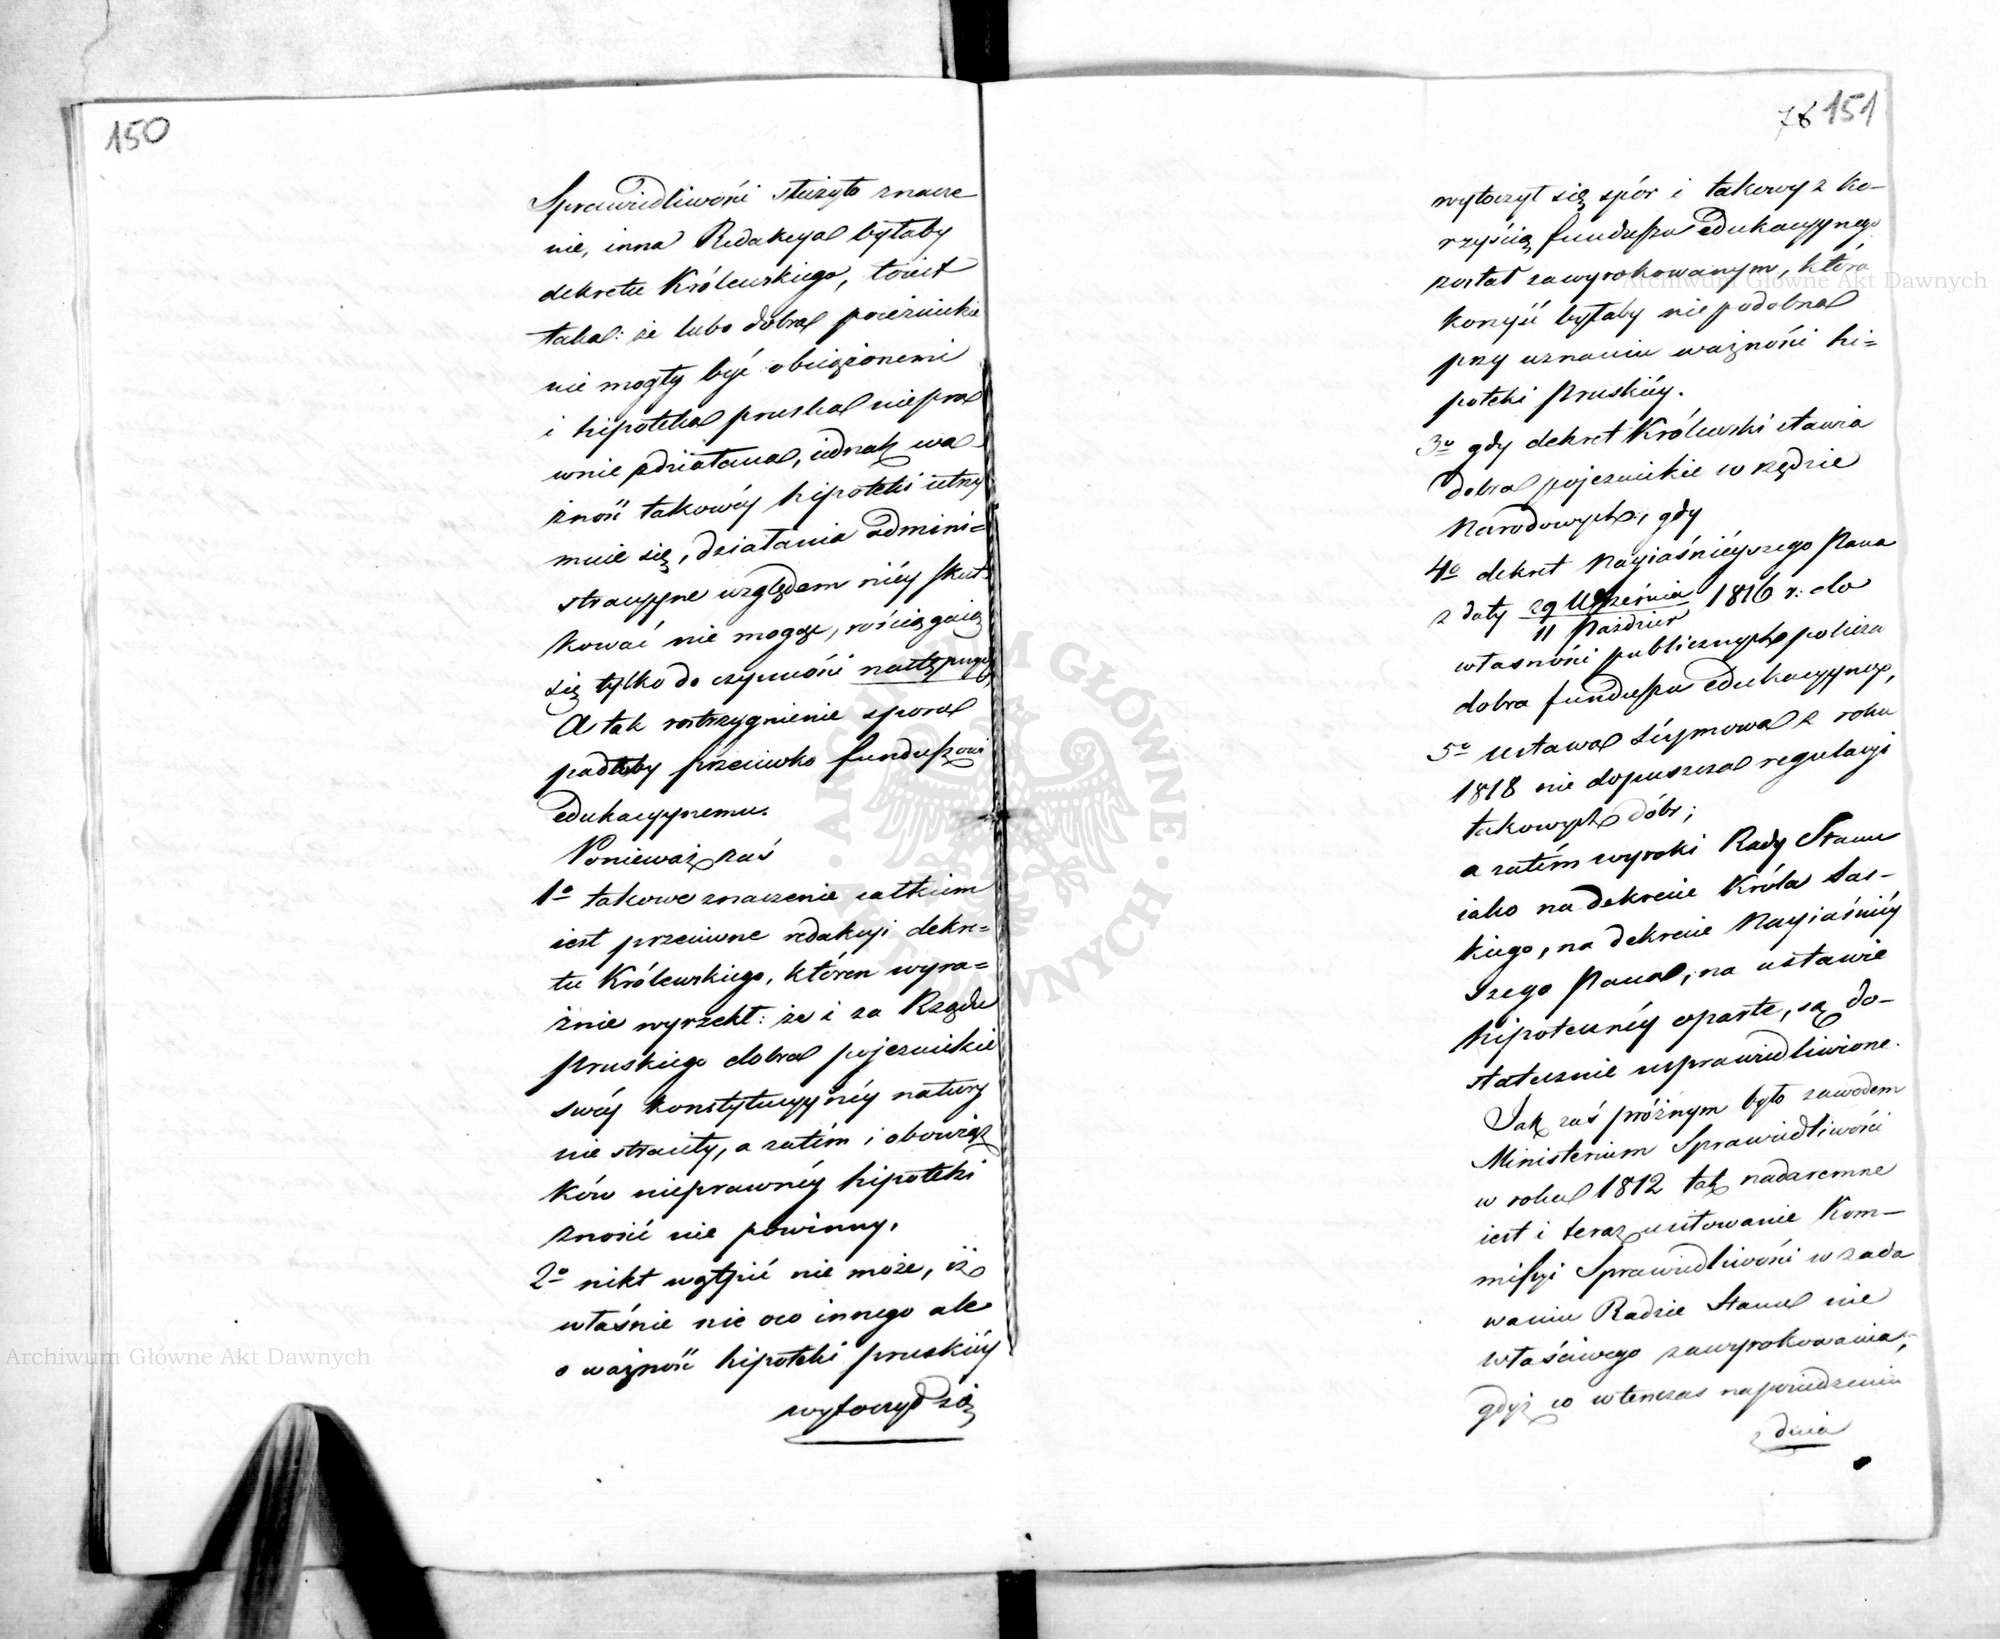 150
Sprawiedliwości służyło znacze
nie, inna Redakcya byłaby
dekretu Królewskiego, toiest
taka: że lubo dobra poiezuickie
nie mogły być obciążonemi
i hipoteka pruska niepra
wnie zdziałana, iednak wa
żność takowéy hipoteki utrzy
muie się, działania admini=
stracyyne względem niéy skut
kować nie mogąc, rościągaią
się tylko do czynności następnych
A tak rostrzygnienie sporu
padłoby przeciwko funduszowi
edukacyynemu.
Ponieważ zaś
1o takowe znaczenie całkiem
iest przeciwne redakcyi dekre=
tu Królewskiego, któren wyra=
źnie wyrzekł: że i za Rządu
Pruskiego dobra pojezuickie
swéy konstytucyynéy natury
nie straciły, a zatém i obowiąz
ków nieprawnéy hipoteki
znosić nie powinny.
2o nikt wątpić nie może, iż
właśnie nie oco innego ale
o ważność hipoteki pruskiéy
wytoczył się
78 151
wytoczył się spór i takowy z ko-
rzyścią funduszu edukacyynego
został zawyrokowanym, która
korzyść byłaby niepodobna
przy uznaniu ważności hi=
poteki Pruskiéy.
3o gdy dekret Królewski stawia
dobra pojezuickie w rzędzie
Narodowych, gdy
4o dekret Nayiaśniéyszego Pana
z daty 29 Września / 11 Paździer 1816 r. do
własności publicznych policza
dobra funduszu edukacyynego,
5o ustawa Séymowa z roku
1818 nie dopuszcza regulacyi
takowych dóbr;
a zatém wyroki Rady Stanu
iako na dekrecie Króla Sas-
kiego, na dekrecie Nayiaśniéy
szego Pana, na ustawie
hipotecznéy oparte, są do-
statecznie usprawiedliwione.
Jak zaś próżnym było zawodem
Ministerium Sprawiedliwości
w roku 1812 tak nadaremne
iest i teraz usiłowanie Kom-
missyi Sprawiedliwości w zada
waniu Radzie Stanu nie
właściwego zawyrokowania,
gdyż co wtenczas na posiedzeniu
z dnia
Archiwum Główne Akt Dawnych
Archiwum Główne Akt Dawnych
ARCHIWUM GŁÓWNE AKT DAWNYCH